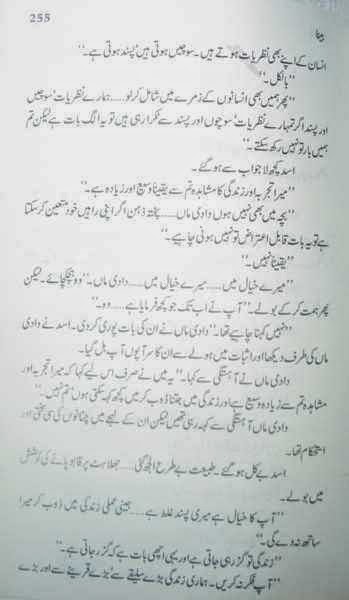 255
بیٹا
انسان کے اپنے بھی نظریات ہوتے ہیں۔ سوچیں ہوتی ہیں' پسند ہوتی ہے۔"
"بالکل۔"
"پھر ہمیں بھی انسانوں کے زمرے میں شامل کر لو..... ہمارے نظریات' سوچیں
اور پسند اگر تمہارے نظریات' سوچوں اور پسند سے ٹکرا رہی ہیں تو یہ الگ بات ہے لیکن تم
ہمیں بار تو نہیں رکھ سکتے۔"
اسد کچھ لاجواب سے ہو گئے۔
"میرا تجربہ اور زندگی کا مشاہدہ تم سے یقیناً وسیع اور زیادہ ہے۔"
"بچہ میں بھی نہیں ہوں دادی ماں..... پختہ ذہن اگر اپنی راہیں خود متعین کر سکتا
ہے تو یہ بات قابل اعتراض تو نہیں ہونی چاہیے۔"
"یقیناً نہیں۔"
"میرے خیال میں..... میرے خیال میں..... دادی ماں۔" وہ ہچکچائے۔ لیکن
پھر ہمت کر کے بولے۔ "آپ نے اب تک جو کچھ فرمایا ہے..... وہ۔"
"نہیں کہنا چاہیے تھا۔" دادی ماں نے ان کی بات پوری کر دی۔ اسد نے دادی
ماں کی طرف دیکھا اور اثبات میں ہولے سے ان کا سر آپوں آپ ہل گیا۔
دادی ماں نے آہستگی سے کہا۔ "یہ میں نے صرف اس لیے کہا کہ میرا تجربہ اور
مشاہدہ تم سے زیادہ وسیع ہے اور زندگی میں جتنا ڈوب کر میں کچھ کہہ سکتی ہوں' تم نہیں۔"
دادی ماں آہستگی سے کہہ رہی تھیں لیکن ان کے لہجے میں چٹانوں کی سی سختی اور
استحکام تھا۔
اسد بے کل ہو گئے۔ طبیعت بے طرح الجھ گئی..... جھلاہٹ پر قابو پانے کی کوشش
میں بولے۔
"آپ کا خیال ہے میری پسند غلط ہے..... عملی زندگی میں ڈوب کر میرا
ساتھ نہ دے گی۔"
"زندگی تو گزر ہی جاتی ہے اور یہی اچھی بات ہے کہ گزر جاتی ہے۔"
"آپ فکر نہ کریں۔ ہماری زندگی بڑے سلیقے سے' بڑے قرینے سے اور بڑے